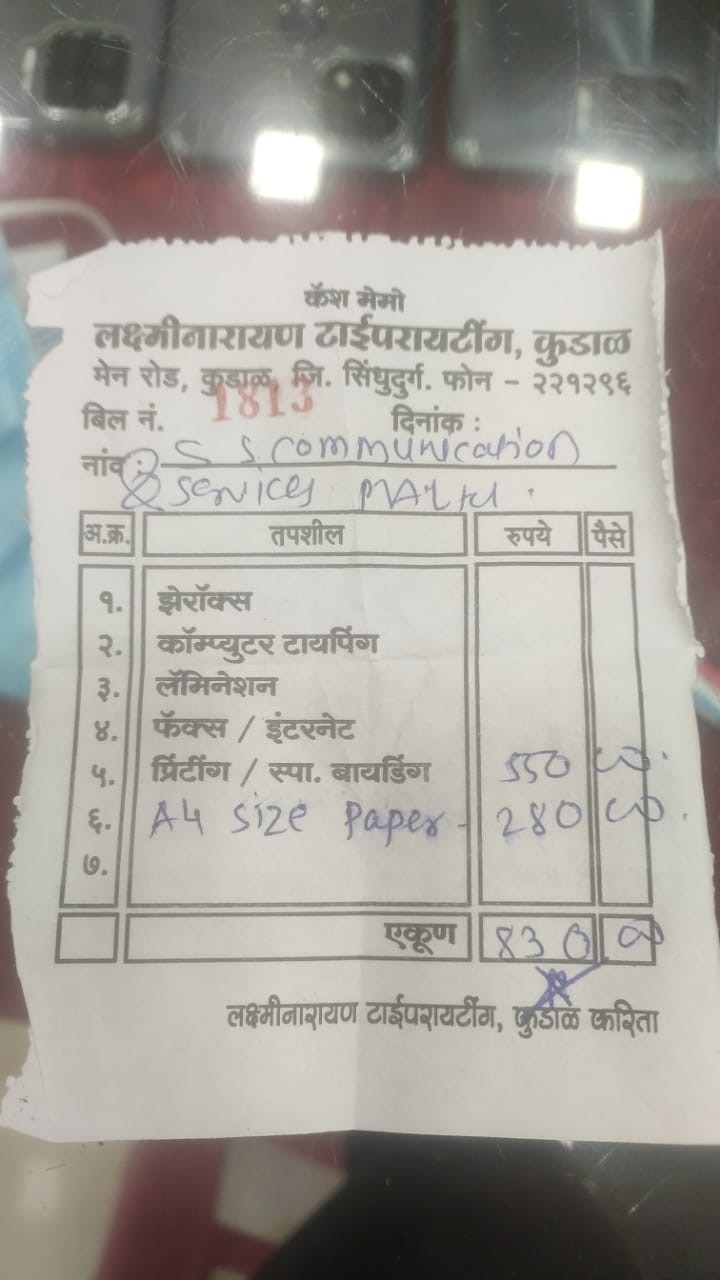 कॅश मेमो
लक्ष्मीनारायण टाईपरायटींग, कुडाळ
मेन रोड, कुडाळ, जि. सिंधुदुर्ग. फोन - २२१२९६
बिल नं. 1813 दिनांक :
नांव : S S communication
& services
अ.क्र. तपशील रुपये पैसे
१. झेरॉक्स
२. कॉम्प्युटर टायपिंग
३. लॅमिनेशन
४. फॅक्स / इंटरनेट
५. प्रिंटींग / स्पा. बायडिंग 550 00
६. A4 size paper - 280 00
७.
एकूण 830 00
लक्ष्मीनारायण टाईपरायटींग, कुडाळ करिता